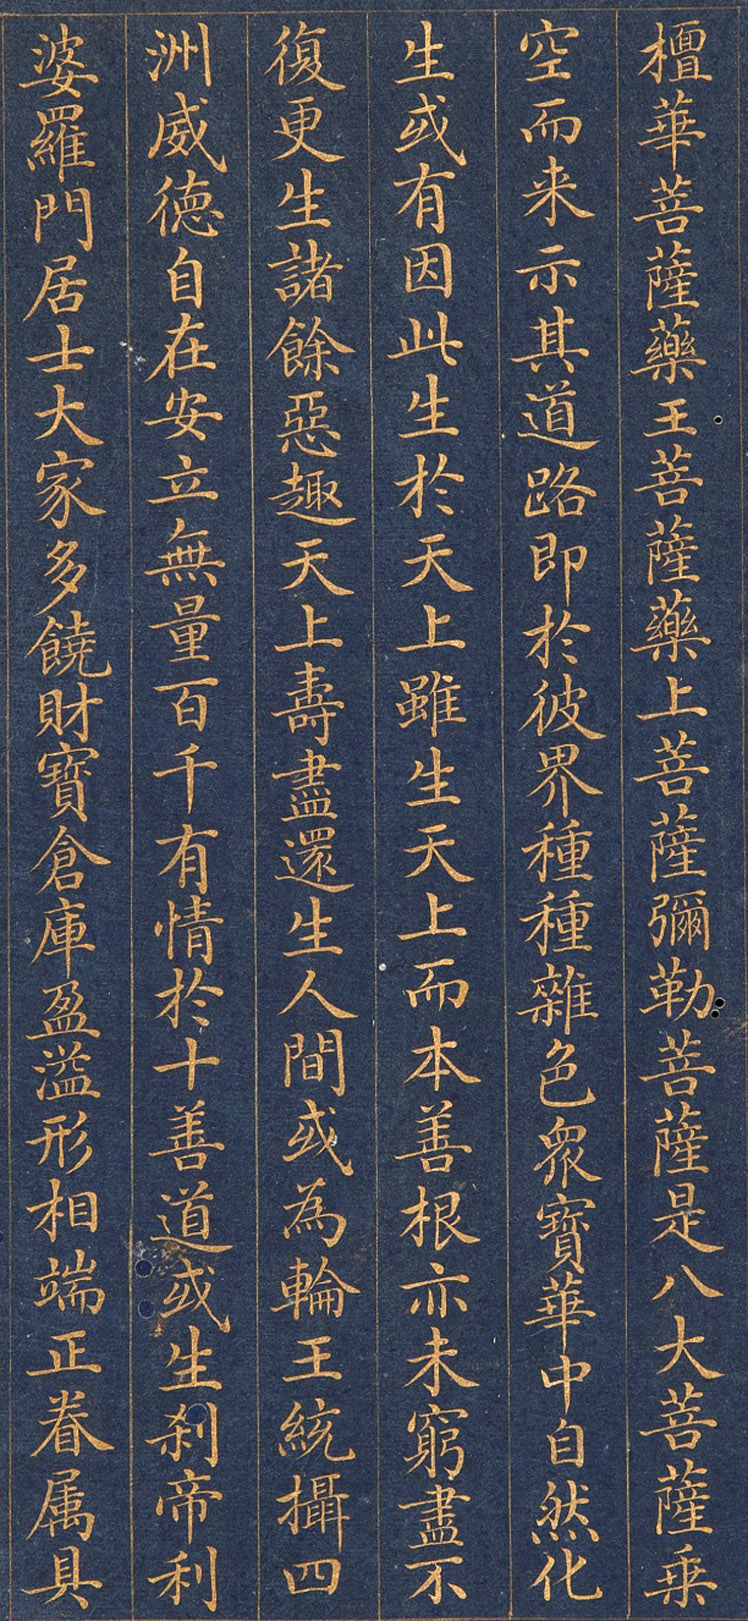 檀華菩薩藥王菩薩藥上菩薩彌勒菩薩是八大菩薩乗
空而来示其道路即於彼界種種雜色衆寶華中自然化
生或有因此生於天上雖生天上而本善根亦未窮盡不
復更生諸餘惡趣天上壽盡還生人間或為輪王統攝四
洲威德自在安立無量百千有情於十善道或生刹帝利
婆羅門居士大家多饒財寶倉庫盈溢形相端正眷属具